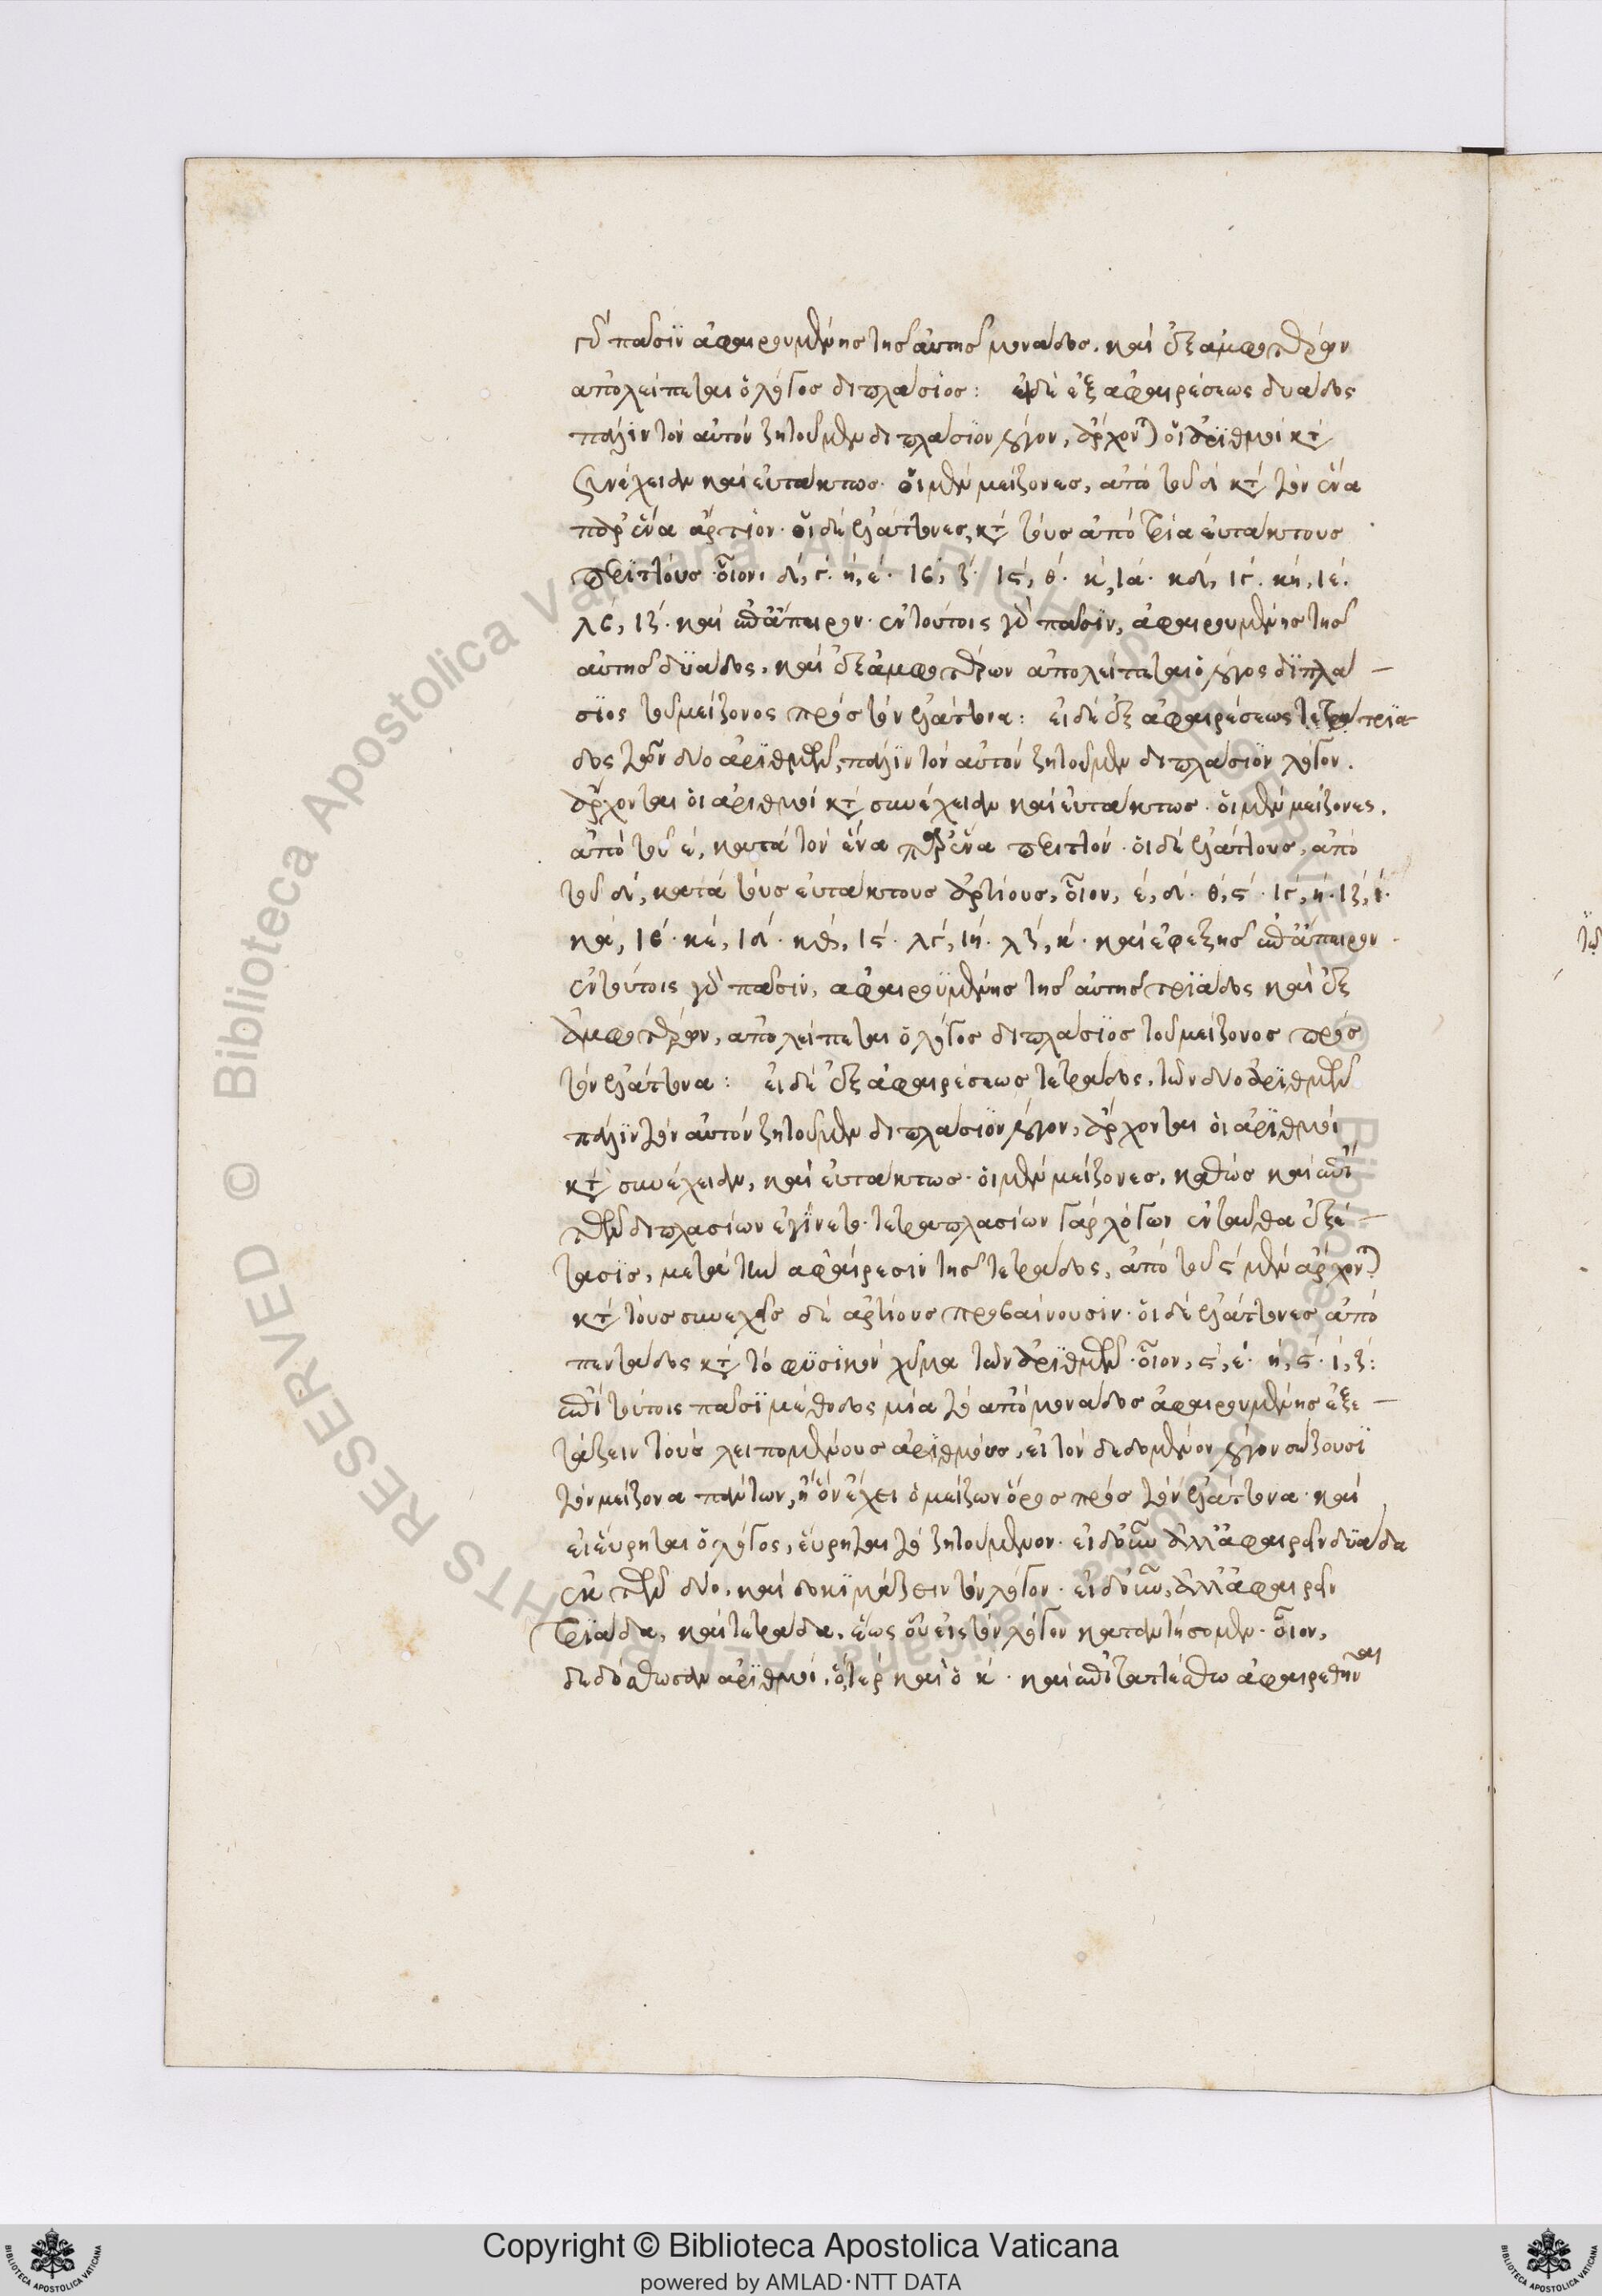 γὰρ πᾶσιν ἀφαιρουμένης τῆς αὐτῆς μονάδος, καὶ ἐξ ἀμφοτέρων
ἀπολείπεται ὁ λόγος διπλάσιος: εἰ δὲ ἐξ ἀφαιρέσεως δυάδος
πάλιν τὸν αὐτὸν ζητοῦμεν διπλάσιον λόγον, ἄρχονται οἱ ἀριθμοὶ κατὰ
συνέχειαν καὶ εὐτάκτως· οἱ μὲν μείζονες, ἀπὸ τοῦ δ κατὰ τὸν ἕνα
παρ' ἕνα ἄρτιον· οἱ δὲ ἐλάττονες, κατὰ τοὺς ἀπὸ τρία εὐτάκτους
περιττούς· οἷον, δ, γ· η, ε· ιβ, ζ· ις, θ· κ, ια· κδ, ιγ· κη, ιε·
λβ, ιζ· καὶ ἐπ' ἄπειρον· ἐν τούτοις γὰρ πᾶσιν, ἀφαιρουμένης τῆς
αὐτῆς δυάδος, καὶ ἐξ ἀμφοτέρων ἀπολείπεται ὁ λόγος διπλά–
σιος τοῦ μείζονος πρὸς τὸν ἐλάττονα: εἰ δὲ ἐξ ἀφαιρέσεως τριά
δος τῶν δύο ἀριθμῶν, πάλιν τὸν αὐτὸν ζητοῦμεν διπλάσιον λόγον.
ἄρχονται οἱ ἀριθμοὶ κατὰ συνέχειαν καὶ εὐτάκτως· οἱ μὲν μείζονες,
ἀπὸ τοῦ ε, κατὰ τὸν ἕνα παρ' ἕνα περιττόν· οἱ δὲ ἐλάττους, ἀπὸ
τοῦ δ, κατὰ τοὺς εὐτάκτους ἀρτίους, οἷον, ε, δ· θ, ς· ιγ, η· ιζ, ι·
κα, ιβ· κε, ιδ· κθ, ις· λγ, ιη· λζ, κ· καὶ ἐφεξῆς ἐπ' ἄπειρον·
ἐν τούτοις γὰρ πᾶσιν, ἀφαιρουμένης τῆς αὐτῆς τριάδος καὶ ἐξ
ἀμφοτέρων, ἀπολείπεται ὁ λόγος διπλάσιος τοῦ μείζονος πρὸς
τὸν ἐλάττονα: εἰ δὲ ἐξ ἀφαιρέσεως τετράδος, τῶν δύο ἀριθμῶν
πάλιν τὸν αὐτὸν ζητοῦμεν διπλάσιον λόγον, ἄρχονται οἱ ἀριθμοὶ
κατὰ συνέχειαν, καὶ εὐτάκτως· οἱ μὲν μείζονες, καθὼς καὶ ἐπὶ
τῶν διπλασίων ἐγίνετο· τετραπλασίων γὰρ λόγων ἐνταῦθα ἐξέ–
τασις, μετὰ τὴν ἀφαίρεσιν τῆς τετράδος, ἀπὸ τοῦ ς μὲν ἄρχονται
κατὰ τοὺς συνεχεῖς δὲ ἀρτίους προβαίνουσιν· οἱ δὲ ἐλάττονες ἀπὸ
πεντάδος κατὰ τὸ φυσικὸν χύμα τῶν ἀριθμῶν· οἷον, ς, ε· η, ς· ι, ζ:
ἐπὶ τούτοις πᾶσι μέθοδος μία τὸ ἀπὸ μονάδος ἀφαιρουμένης ἐξε–
τάζειν τοὺς λειπομένους ἀριθμούς, εἰ τὸν δεδομένον λόγον σώζουσι
τὸν μείζονα πάντων, ἢ ὃν ἔχει ὁ μείζων ὅρος πρὸς τὸν ἐλάττονα· καὶ
εἰ εὕρηται ὁ λόγος, εὕρηται τὸ ζητούμενον· εἰ δ' οὖν ἀλλ' ἀφαιρεῖν δυάδα
ἐκ τῶν δύο, καὶ δοκιμάζειν τὸν λόγον· εἰ δ' οὖν, ἀλλ' ἀφαιρεῖν
τριάδα, καὶ τετράδα, ἕως οὗ εἰς τὸν λόγον καταντήσομεν· οἷον,
δεδόσθωσαν ἀριθμοί, ὅ, τε ρ καὶ ὁ κ· καὶ ἐπιταττέσθω ἀφαιρεθῆναι
Copyright © Biblioteca Apostolica Vaticana
powered by AMLAD·NTT DATA